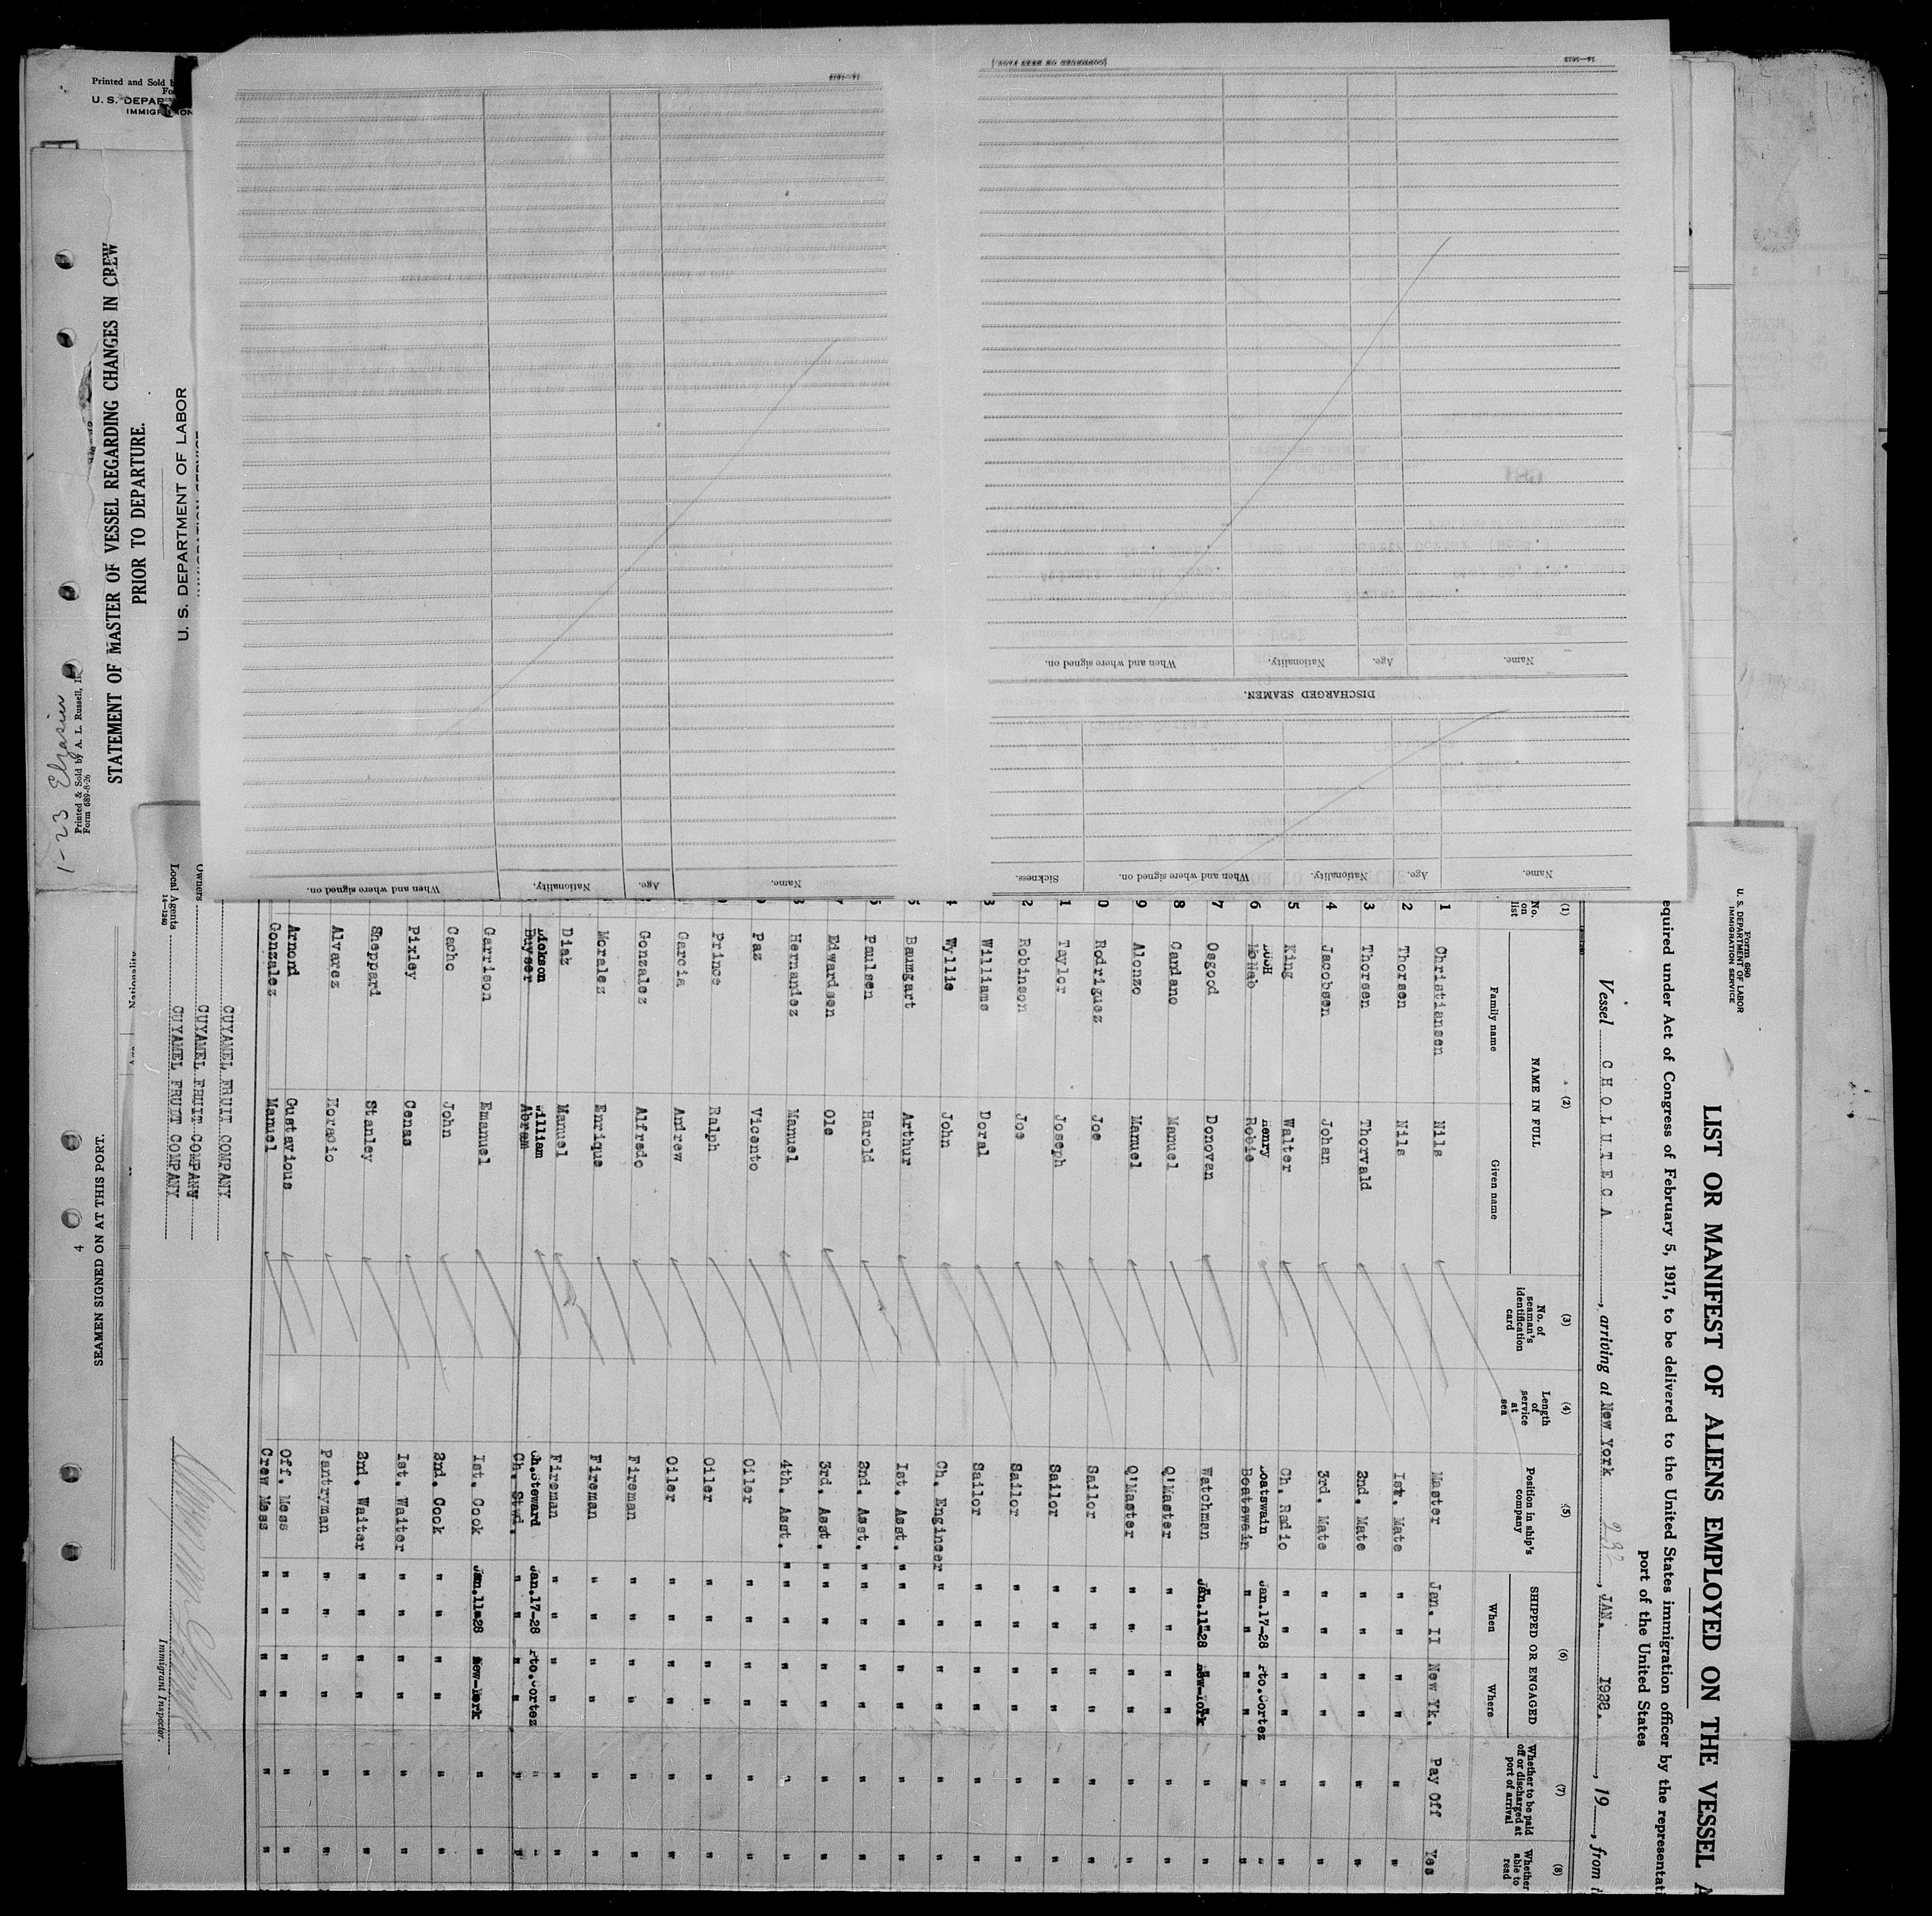 Form 680
U. S. DEPARTMENT OF LABOR
IMMIGRATION SERVICE
LIST OR MANIFEST OF ALIENS EMPLOYED ON THE VESSEL A
equired under Act of Congress of February 5, 1917, to be delivered to the United States immigration officer by the representati
port of the United States
Vessel CHOLUTECA, arriving at New York, JAN. 1928., 19, from
(1) (2) (3) (4) (5) (6) (7) (8)
No. on list NAME IN FULL No. of seaman's identification card Length of service at sea Position in ship's company SHIPPED OR ENGAGED Whether to be paid off or discharged at port of arrival Whether able to read
Family name Given name When Where
1 Christiansen Nils Master Jan. II New Yk. Pay Off Yes
2 Thorsen Nils Ist. Mate " " " " " "
3 Thorsen Thorvald 2nd. Mate " " " " " "
4 Jacobsen Johan 3rd. Mate " " " " " "
5 King Walter Ch. Radio " " " " " "
Henry Boatswain Jan.17-28 Pto.Cortez " "
6 McNab Robie Boatswain " " " " " "
7 Osgood Donovan Watchman Jan.11-28 New-York " "
8 Cardano Manuel Q'Master " " " " " "
9 Alonzo Manuel Q'Master " " " " " "
0 Rodriguez Joe Sailor " " " " " "
1 Taylor Joseph Sailor " " " " " "
2 Robinson Joe Sailor " " " " " "
3 Williams Doral Sailor " " " " " "
4 Wyllie John Ch. Engineer " " " " " "
5 Baumgart Arthur Ist. Asst. " " " " " "
Paulsen Harold 2nd. Asst. " " " " " "
Edwardsen Ole 3rd. Asst. " " " " " "
Hernandez Manuel 4th. Asst. " " " " " "
Paz Vicento Oiler " " " " " "
Prince Ralph Oiler " " " " " "
Garcia Andrew Oiler " " " " " "
Gonzalez Alfredo Fireman " " " " " "
Morales Enrique Fireman " " " " " "
Diaz Manuel Fireman " " " " " "
Dickson William Ch.Steward Jan.17-28 Pto.Cortez " "
Buyser Abram Ch. Stwd. " " " " " "
Garrison Emanuel Ist. Cook Jan.11-28 New-York " "
Cacho John 2nd. Cook " " " " " "
Pixley Cenas Ist. Waiter " " " " " "
Sheppard Stanley 2nd. Waiter " " " " " "
Alvarez Horacio Pantryman " " " " " "
Arnond Gustavious Off. Mess " " " " " "
Gonzalez Manuel Crew Mess " " " " " "
CUYAMEL FRUIT COMPANY
Owners CUYAMEL FRUIT COMPANY
Local Agents CUYAMEL FRUIT COMPANY
14—1240
Immigrant Inspector.
14—1012
(CONTINUED ON NEXT PAGE.)
14—1012
Name. Age. Nationality. When and where signed on. Sickness.
DISCHARGED SEAMEN.
Name. Age. Nationality. When and where signed on.
Name. Age. Nationality. When and where signed on.
Printed and Sold b
Fo
U. S. DEPAR
IMMIGRATION
1-23
Printed & Sold by A. L. Russell, I
Form 689-8-26
STATEMENT OF MASTER OF VESSEL REGARDING CHANGES IN CREW
PRIOR TO DEPARTURE.
U. S. DEPARTMENT OF LABOR
IMMIGRATION SERVICE
4
SEAMEN SIGNED ON AT THIS PORT.
Age. Nationality.